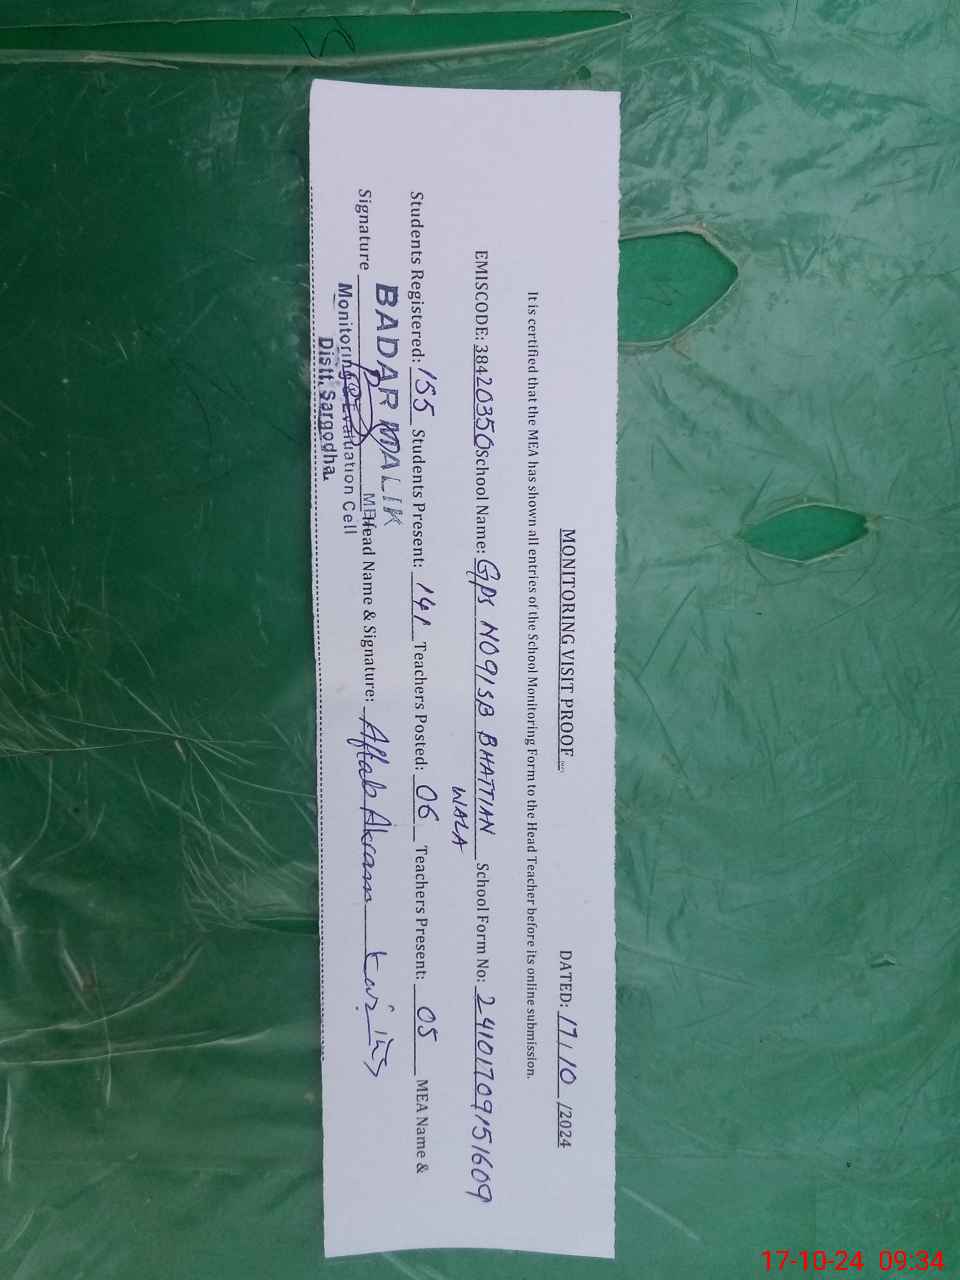 MONITORING VISIT PROOF
DATED: 17/10/2024
It is certified that the MEA has shown all entries of the School Monitoring Form to the Head Teacher before its online submission.
EMISCODE: 38420350 School Name: GPS NO 91 SB BHATTIAN WALA School Form No: 24101709151609
Students Registered: 155 Students Present: 141 Teachers Posted: 06 Teachers Present: 05 MEA Name &
Signature Head Name & Signature: Aftab Akram
BADAR MALIK
MEA
Monitoring & Evaluation Cell
Distt. Sargodha.
17-10-24 09:34